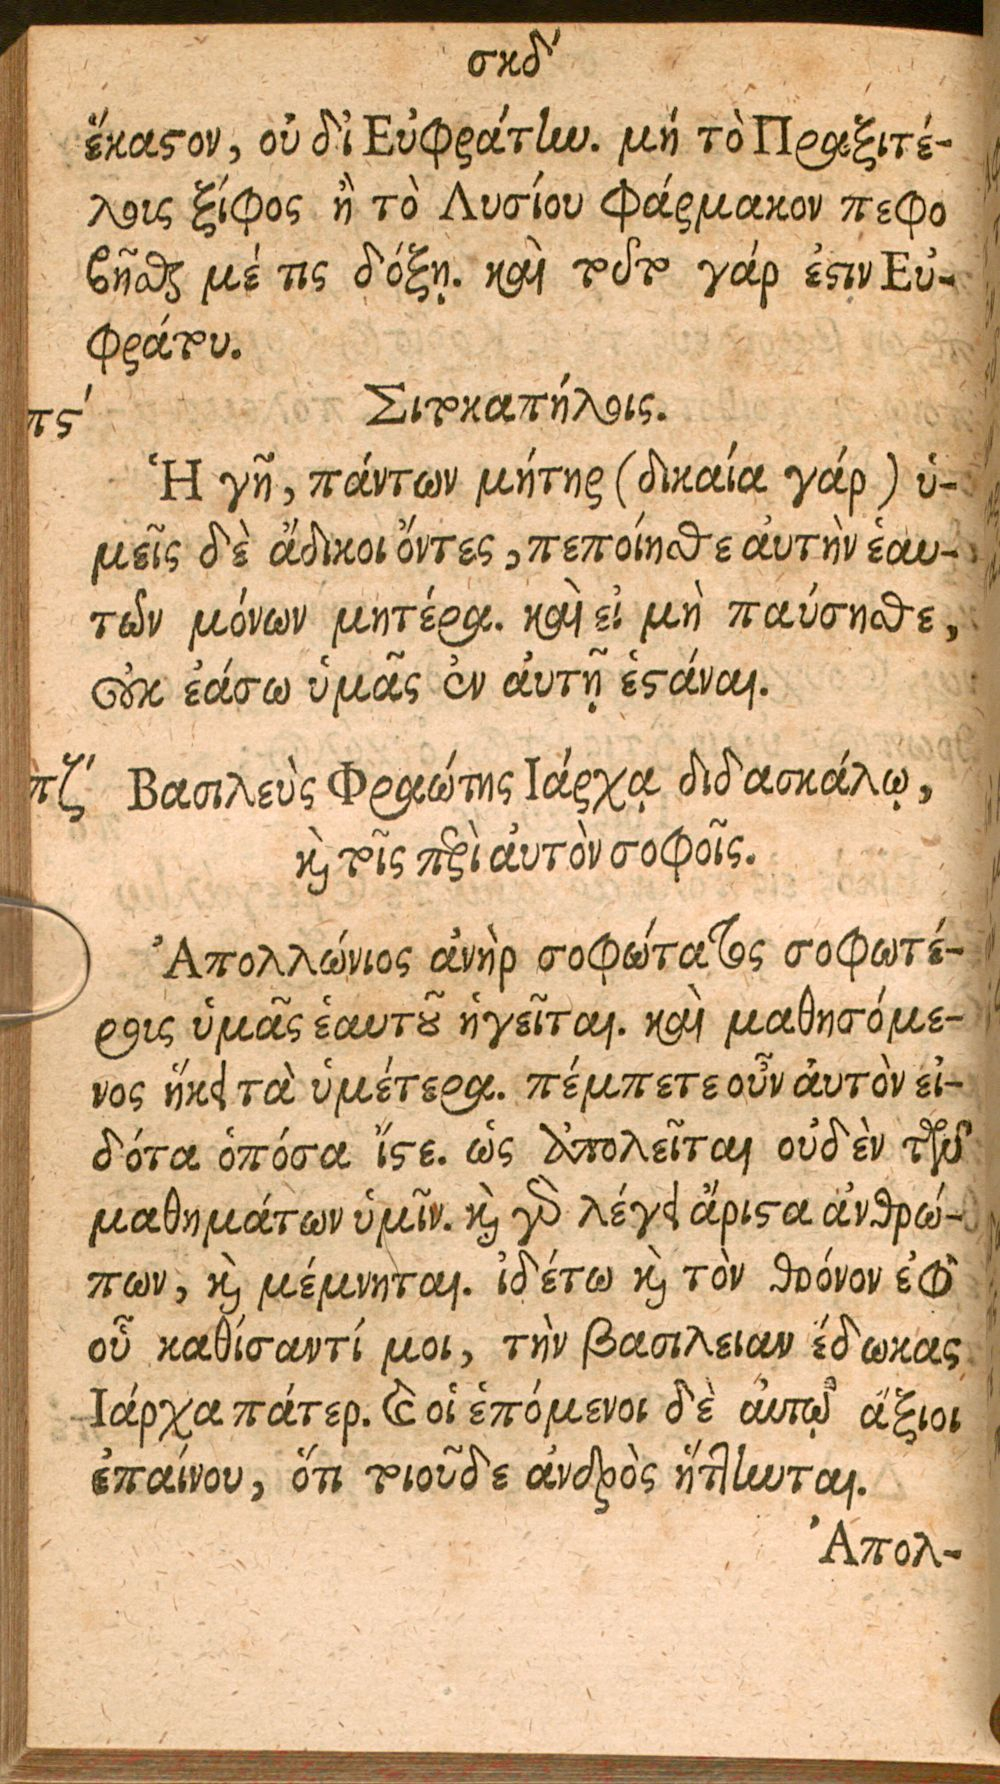 σκδʹ
ἕκαστον, οὐ δἰ Εὐφράτην. μή τὸ Πραξιτέ-
λους ξίφος ἢ τὸ Λυσίου φάρμακον πεφο
βῆσθαί μέ τις δόξῃ. καὶ τοῦτο γάρ ἐστιν Εὐ-
φράτου.
πϛʹ
Σιτοκαπήλοις.
Ἡ γῆ, πάντων μήτηρ (δικαία γάρ) ὑ-
μεῖς δὲ ἄδικοι ὄντες, πεποίησθε ἀυτὴν ἑαυ-
τῶν μόνων μητέρα. καὶ εἰ μὴ παύσησθε,
οὐκ ἐάσω ὑμᾶς ἐν ἀυτῇ ἑστάναι.
πζʹ Βασιλεὺς Φραώτης Ιάρχᾳ διδασκάλῳ,
καὶ τοῖς περὶ ἀυτὸν σοφοῖς.
Ἀπολλώνιος ἀνὴρ σοφώτατος σοφωτέ-
ρους ὑμᾶς ἑαυτοῦ ἡγεῖται. καὶ μαθησόμε-
νος ἥκει τὰ ὑμέτερα. πέμπετε οὖν ἀυτὸν εἰ-
δότα ὁπόσα ἴστε. ὡς ἀπολεῖται οὐδὲν τῶν
μαθημάτων ὑμῖν. καὶ γὰρ λέγει ἄριστα ἀνθρώ-
πων, καὶ μέμνηται. ἰδέτω καὶ τὸν θρόνον ἐφ'
οὗ καθίσαντί μοι, τὴν βασιλειαν ἔδωκας
Ιάρχα πάτερ. καὶ οἱ ἑπόμενοι δὲ ἀυτῷ ἄξιοι
ἐπαίνου, ὅτι τοιοῦδε ἀνδρὸς ἥττηνται.
Ἀπολ-